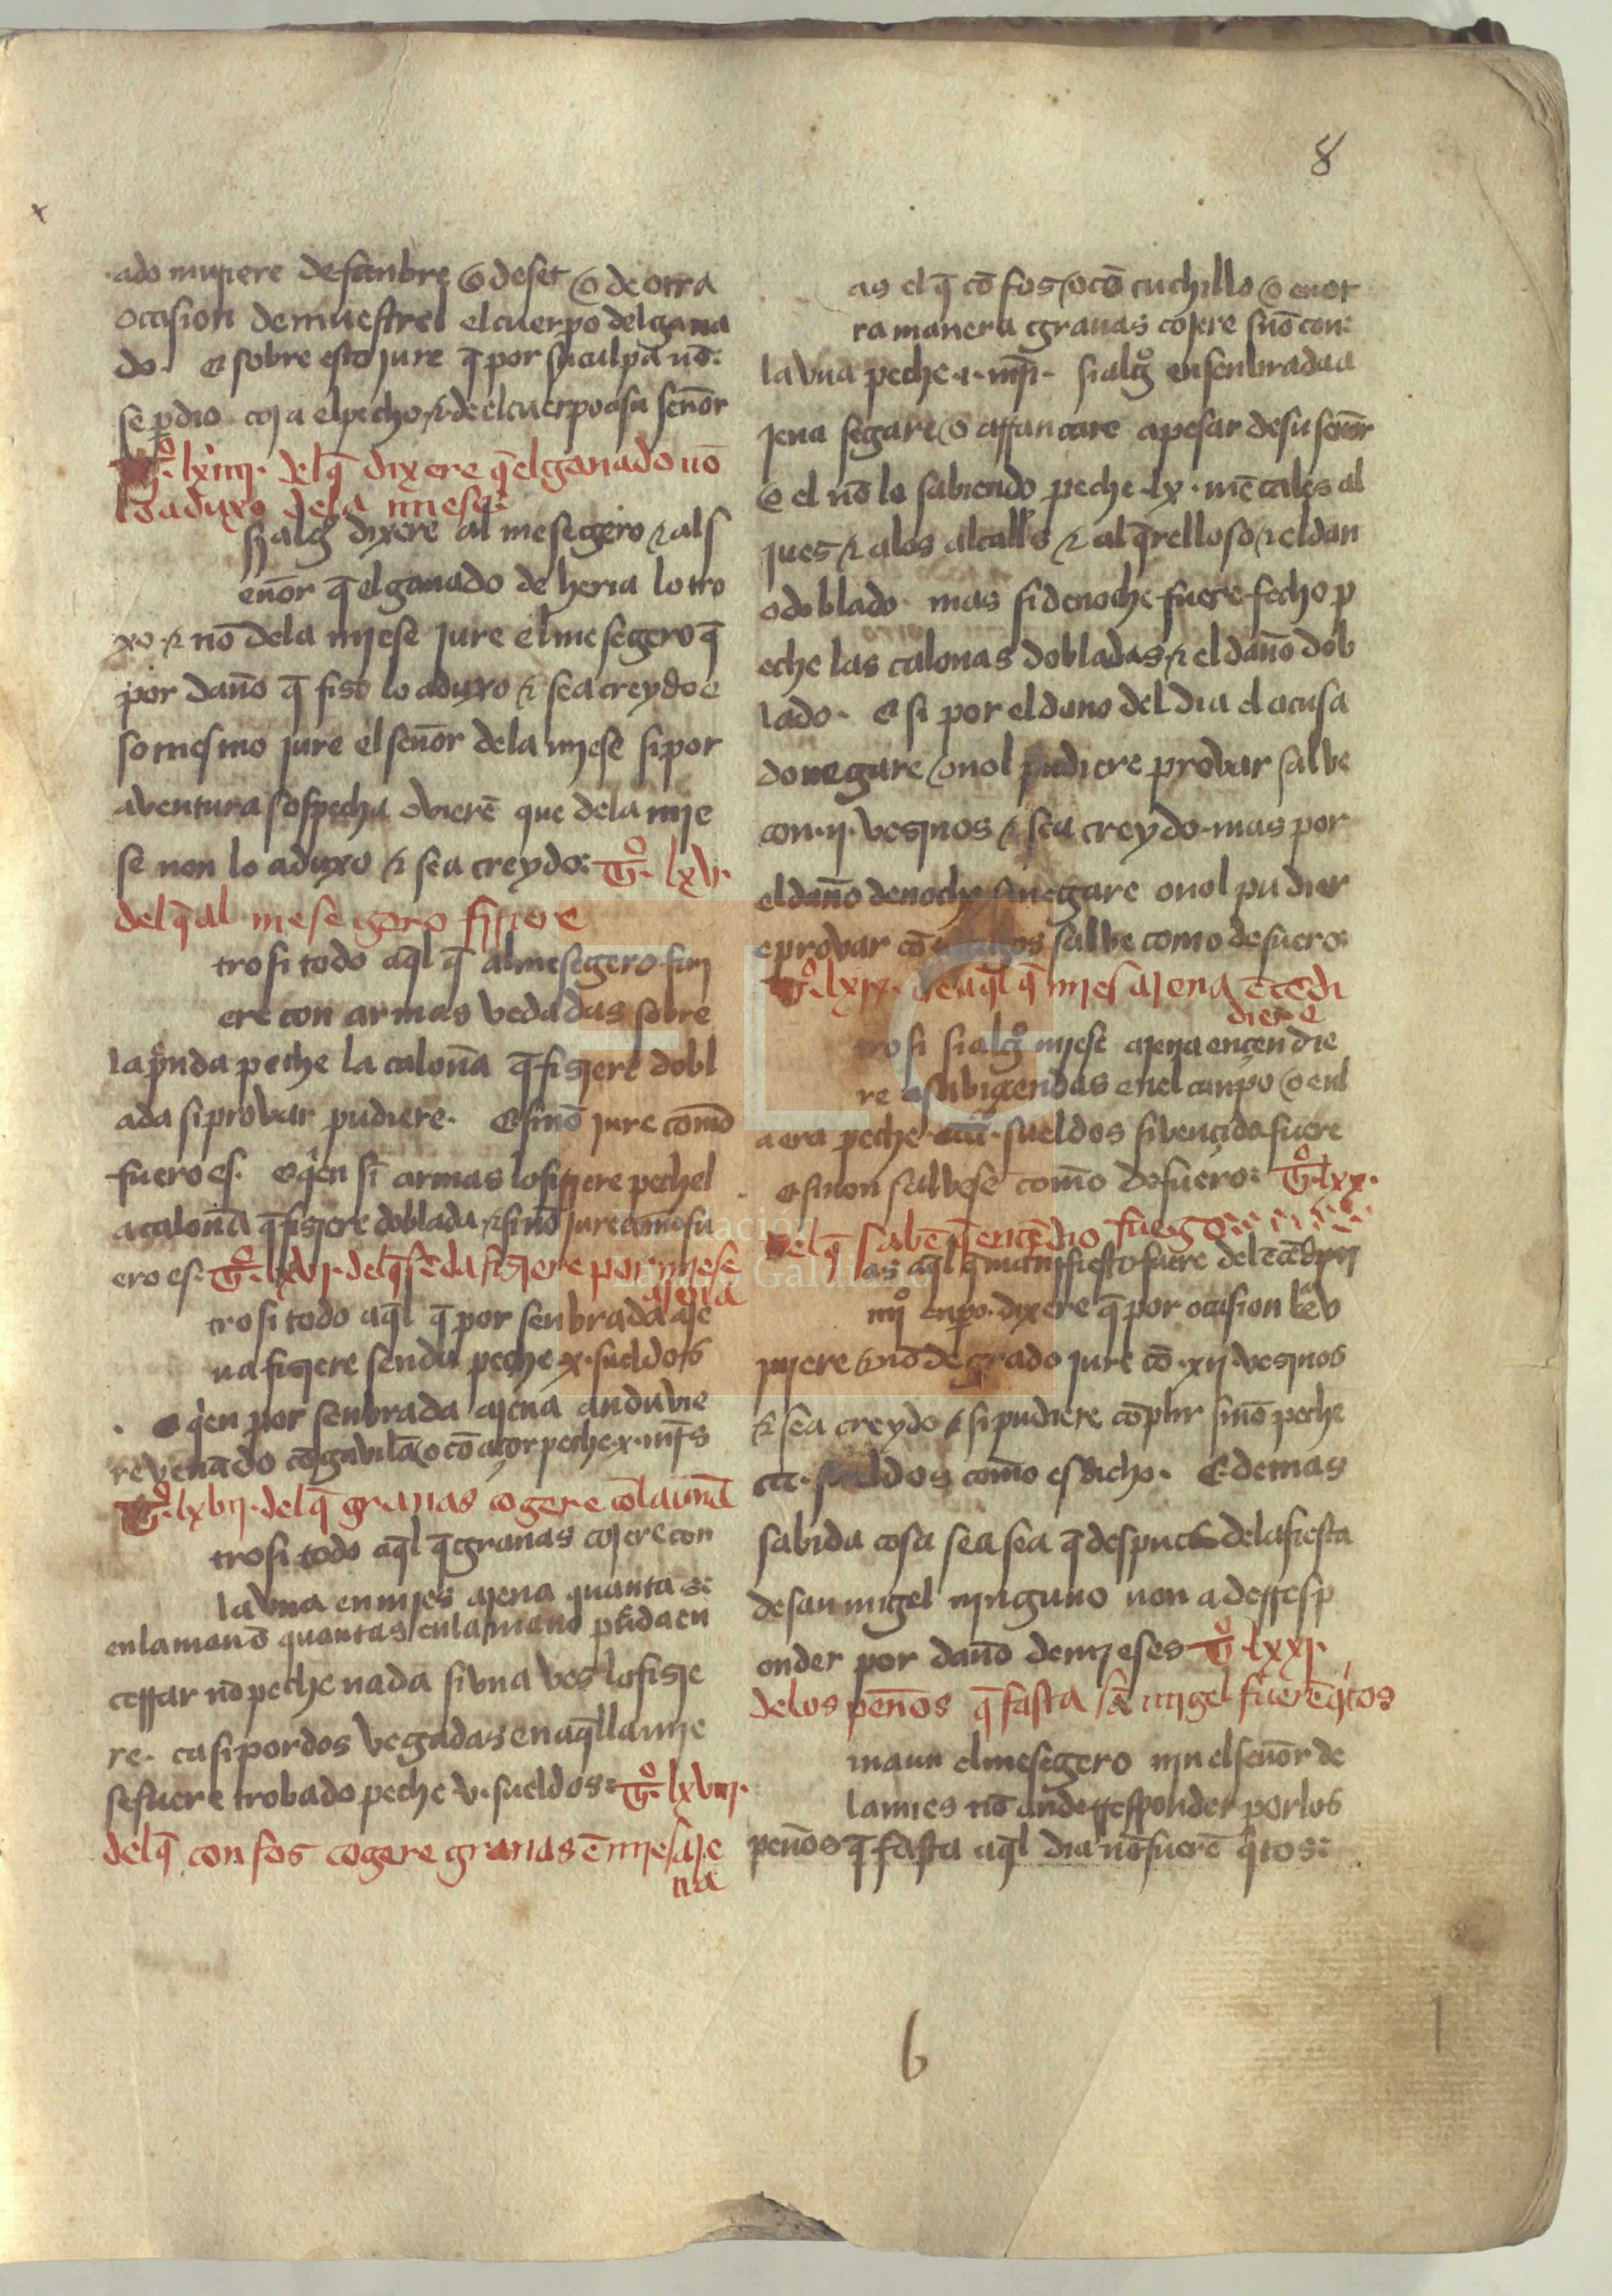 8
x
ado muriere de fanbre o de set o de otra
ocasion demuestrel el cuerpo del gana
do. e sobre esto jure q̄ por su culpa nō:
se perdio coja el pecho ⁊ de el cuerpo a su señor
Tº. lxiiii. del q̄ dixere q̄ el ganado nō
lo aduxo dela miese:
Si algº dixere al mesegero ⁊ al s
eñor q̄ el ganado de heria lo tro
xo ⁊ nō dela miese jure el mesegero q̄
por daño q̄ fiso lo aduxo ⁊ sea creydo e
so mesmo jure el señor dela miese si por
aventura sospecha ovierē que dela mie
se non lo aduxo ⁊ sea creydo: Tº. lxv.
del q̄ al mesegero firiere
trosi todo aq̄l q̄ al mesegero firi
ere con armas vedadas sobre
la prenda peche la caloña q̄ fisiere dobl
ada si provar pudiere. e sinō jure como
fuero es. e q̄en sī armas lo firiere peche l
a caloña q̄ fisiere doblada ⁊ sinō jure como fu
ero es: Tº. lxvi. del q̄ sēda fisiere por miese
ajena
trosi todo aq̄l q̄ por senbrada aje
na fisiere senda peche x. sueldos
e q̄en por senbrada ajena anduvie
re venādo cō gavilā o cō açor peche x. mr̄s
Tº. lxvii. del q̄ granas cogere cō la uña
trosi todo aq̄l q̄ granas cojere con
la uña en mies ajena quanta se
en la mano quantas en la mano pueda en
cerrar nō peche nada si una ves lo fisie
re. ca si por dos vegadas en aq̄lla mie
se fuere trobado peche v. sueldos: Tº. lxviii.
del q̄ con fos cogere granas ē mies aje
na
as el q̄ cō fos o cō cuchillo o en ot
ra manera granas cojere sinō con:
la uña peche .i. mr̄i. si algº en senbrada a
jena segare o arrancare a pesar de su señor
o el nō lo sabiendo peche .lx. mēcales al
jues ⁊ alos alcalls ⁊ al q̄relloso ⁊ el dan
o doblado. mas si de noche fuere fecho p
eche las calonas dobladas ⁊ el daño dob
lado. e si por el dano del dia el acusa
do negare o nol pudiere provar salve
con .ii. vesinos ⁊ sea creydo. mas por
el daño de noche si negare o nol pudier
e provar cō salve como de fuero:
Tº. lxix. de aq̄l q̄ mies ajena ēcēdi
diere
trosi si algº miese ajena ençendie
re a sabiendas en el canpo o en l
a era peche .ccc. sueldos si vençido fuere
e si non salvese como de fuero: Tº. lxx.
del q̄ sabē q̄ encēdio fuego
as aq̄l q̄ manifiesto fuere del ēcēdi
miº enpº. dixere q̄ por ocasion le v
iniere ⁊ nō de grado jure cō .xii. vesinos
⁊ sea creydo ⁊ si pudiere cōplir sinō peche
ccc. sueldos como es dicho. E demas
sabida cosa sea sea q̄ despues dela fiesta
de san migel ninguno non a de rresp
onder por daño de mieses Tº. lxxi.
delos peños q̄ fasta sā migel fuerē q̄tos
maun el mesegero nin el señor de
la mies nō an de rresponder por los
peños q̄ fasta aq̄l dia nō fuerē q̄tos:
6
FLG
Fundación
Lázaro Galdiano